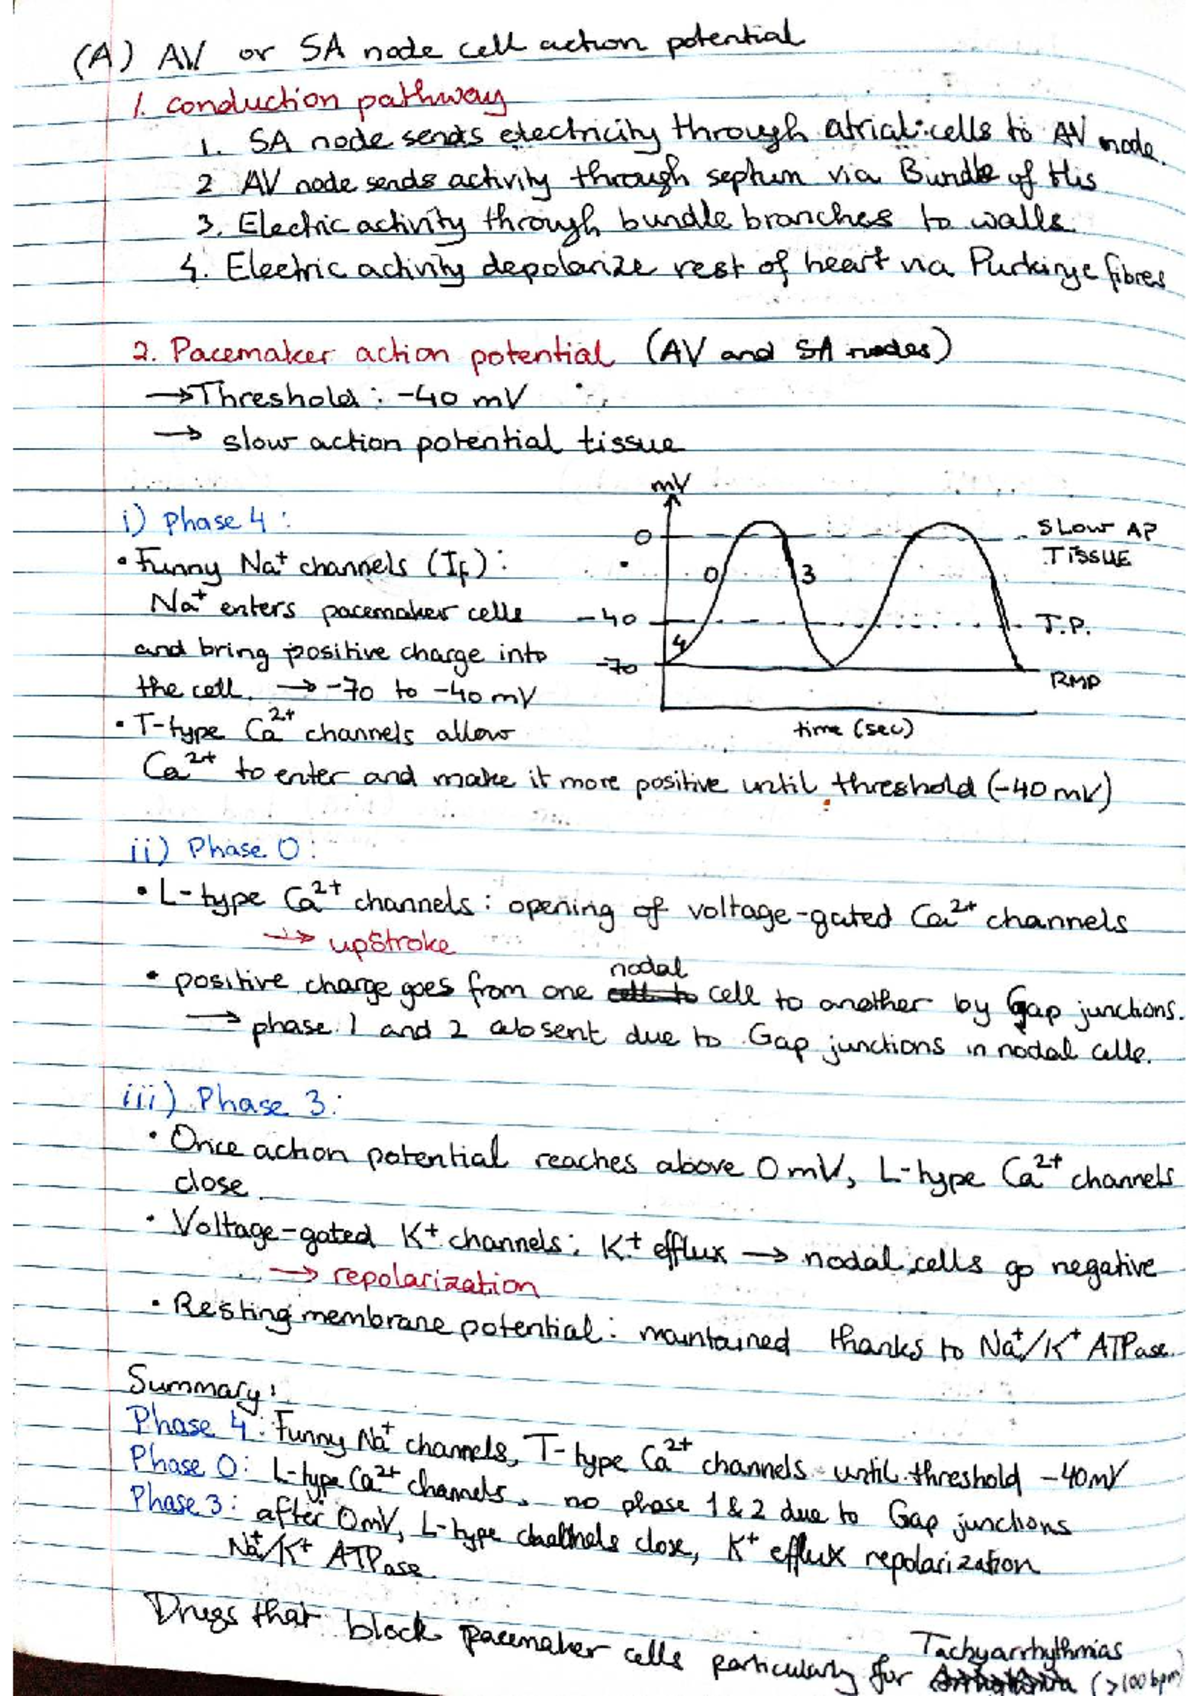 (A) AV or SA node cell action potential
1. conduction pathway
1. SA node sends electricity through atrial cells to AV node.
2 AV node sends activity through septum via Bundle of His
3. Electric activity through bundle branches to walls.
4. Electric activity depolarize rest of heart via Purkinje fibres
2. Pacemaker action potential (AV and SA nodes)
→ Threshold: -40 mV
→ slow action potential tissue
i) Phase 4:
• Funny Na⁺ channels (If):
Na⁺ enters pacemaker cells
and bring positive charge into
the cell. → -70 to -40 mV
• T-type Ca²⁺ channels allow
Ca²⁺ to enter and make it more positive until threshold (-40 mV)
mV
0
-40
-70
0
3
4
SLOW AP
TISSUE
T.P.
RMP
time (sec)
ii) Phase 0:
• L-type Ca²⁺ channels: opening of voltage-gated Ca²⁺ channels
→ upstroke
• positive charge goes from one nodal cell to another by Gap junctions.
→ phase 1 and 2 absent due to Gap junctions in nodal cells.
iii) Phase 3:
• Once action potential reaches above 0 mV, L-type Ca²⁺ channels
close.
• Voltage-gated K⁺ channels: K⁺ efflux → nodal cells go negative
→ repolarization
• Resting membrane potential: maintained thanks to Na⁺/K⁺ ATPase.
Summary:
Phase 4: Funny Na⁺ channels, T-type Ca²⁺ channels - until threshold -40mV
Phase 0: L-type Ca²⁺ channels. no phase 1 & 2 due to Gap junctions
Phase 3: after 0mV, L-type channels close, K⁺ efflux repolarization
Na⁺/K⁺ ATPase.
Drugs that block pacemaker cells particularly for Tachyarrhythmias (>100 bpm)